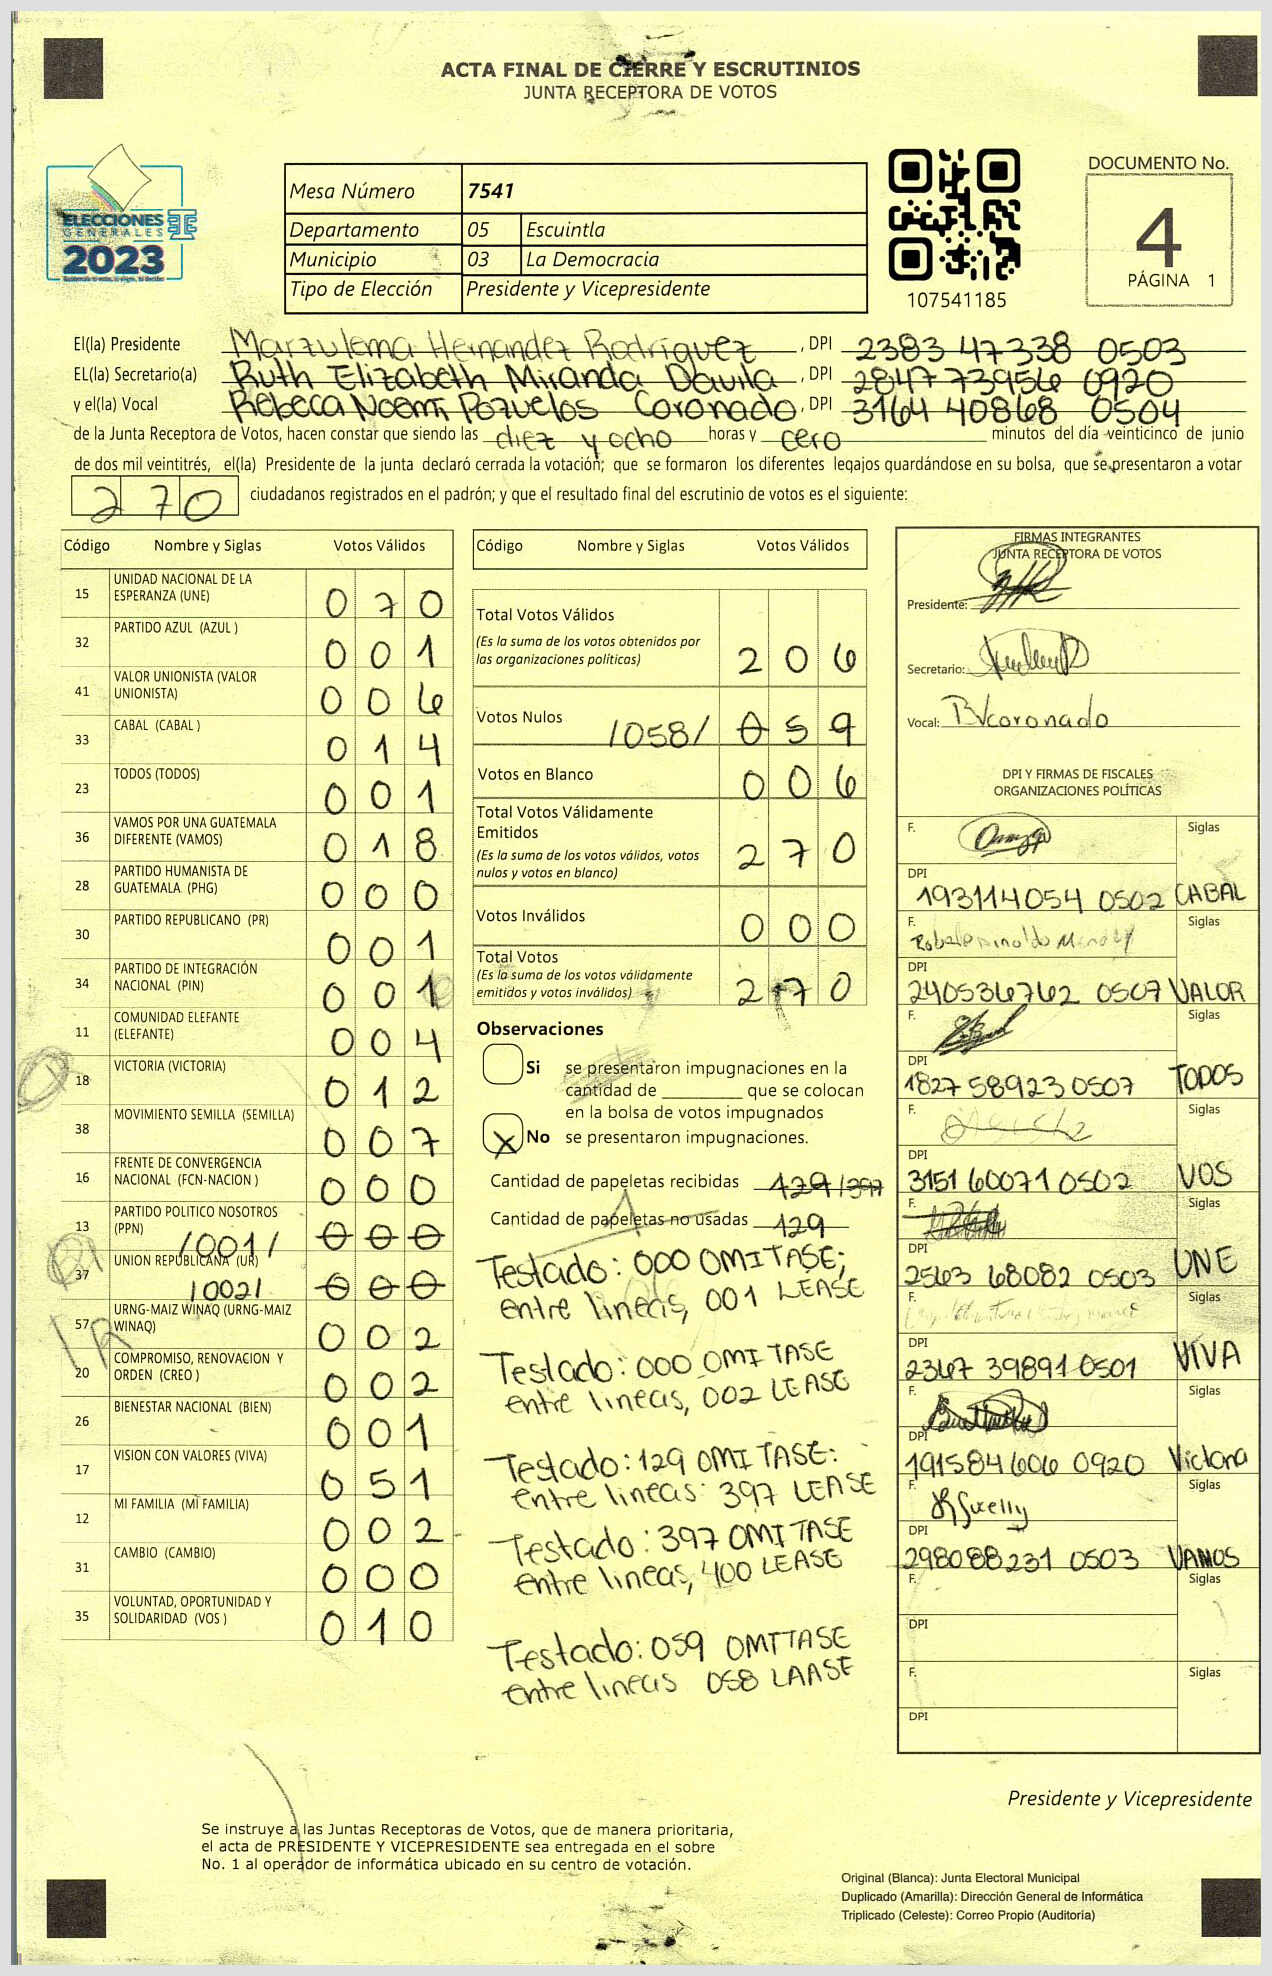 ACTA FINAL DE CIERRE Y ESCRUTINIOS
JUNTA RECEPTORA DE VOTOS
ELECCIONES
GENERALES
2023
Mesa Número 7541
Departamento 05 Escuintla
Municipio 03 La Democracia
Tipo de Elección Presidente y Vicepresidente
107541185
DOCUMENTO No.
4
PÁGINA 1
El(la) Presidente Marzulema Hernandez Rodriguez, DPI 2383 47338 0503
EL(la) Secretario(a) Ruth Elizabeth Miranda Davila, DPI 2847 73956 0920
y el(la) Vocal Rebeca Noemi Pozuelos Coronado, DPI 3164 40868 0504
de la Junta Receptora de Votos, hacen constar que siendo las diez y ocho horas y cero minutos del día veinticinco de junio
de dos mil veintitrés, el(la) Presidente de la junta declaró cerrada la votación; que se formaron los diferentes legajos guardándose en su bolsa, que se presentaron a votar
270 ciudadanos registrados en el padrón; y que el resultado final del escrutinio de votos es el siguiente:
Código Nombre y Siglas Votos Válidos
15 UNIDAD NACIONAL DE LA ESPERANZA (UNE) 070
32 PARTIDO AZUL (AZUL ) 001
41 VALOR UNIONISTA (VALOR UNIONISTA) 006
33 CABAL (CABAL ) 014
23 TODOS (TODOS) 001
36 VAMOS POR UNA GUATEMALA DIFERENTE (VAMOS) 018
28 PARTIDO HUMANISTA DE GUATEMALA (PHG) 000
30 PARTIDO REPUBLICANO (PR) 001
34 PARTIDO DE INTEGRACIÓN NACIONAL (PIN) 001
11 COMUNIDAD ELEFANTE (ELEFANTE) 004
18 VICTORIA (VICTORIA) 012
38 MOVIMIENTO SEMILLA (SEMILLA) 007
16 FRENTE DE CONVERGENCIA NACIONAL (FCN-NACION ) 000
13 PARTIDO POLITICO NOSOTROS (PPN) /001/ 000
37 UNION REPUBLICANA (UR) /002/ 000
57 URNG-MAIZ WINAQ (URNG-MAIZ WINAQ) 002
20 COMPROMISO, RENOVACION Y ORDEN (CREO ) 002
26 BIENESTAR NACIONAL (BIEN) 001
17 VISION CON VALORES (VIVA) 051
12 MI FAMILIA (MI FAMILIA) 002
31 CAMBIO (CAMBIO) 000
35 VOLUNTAD, OPORTUNIDAD Y SOLIDARIDAD (VOS ) 010
Código Nombre y Siglas Votos Válidos
Total Votos Válidos 206
(Es la suma de los votos obtenidos por
las organizaciones políticas)
Votos Nulos /058/ 059
Votos en Blanco 006
Total Votos Válidamente
Emitidos 270
(Es la suma de los votos válidos, votos
nulos y votos en blanco)
Votos Inválidos 000
Total Votos 270
(Es la suma de los votos válidamente
emitidos y votos inválidos)
Observaciones
Si se presentaron impugnaciones en la
cantidad de ________ que se colocan
en la bolsa de votos impugnados
X No se presentaron impugnaciones.
Cantidad de papeletas recibidas 129 /397
Cantidad de papeletas no usadas 129
Testado: 000 OMITASE;
entre lineas, 001 LEASE
Testado: 000 OMITASE
entre lineas, 002 LEASE
Testado: 129 OMITASE:
entre lineas: 397 LEASE
Testado: 397 OMITASE
entre lineas, 400 LEASE
Testado: 059 OMITTASE
entre lineas 058 LAASE
FIRMAS INTEGRANTES
JUNTA RECEPTORA DE VOTOS
Presidente:
Secretario:
Vocal: RVcoronado
DPI Y FIRMAS DE FISCALES
ORGANIZACIONES POLÍTICAS
F. Siglas
DPI 193114054 0502 CABAL
F. Siglas
DPI 240536762 0507 VALOR
F. Siglas
DPI 1827 58923 0507 TODOS
F. Siglas
DPI 3151 60071 0502 VOS
F. Siglas
DPI 2563 68082 0503 UNE
F. Siglas
DPI 2367 39891 0501 VIVA
F. Siglas
DPI 191584606 0920 Victoria
F. Siglas
DPI 298088231 0503 VAMOS
F. Siglas
DPI
F. Siglas
DPI
Presidente y Vicepresidente
Se instruye a las Juntas Receptoras de Votos, que de manera prioritaria,
el acta de PRESIDENTE Y VICEPRESIDENTE sea entregada en el sobre
No. 1 al operador de informática ubicado en su centro de votación.
Original (Blanca): Junta Electoral Municipal
Duplicado (Amarilla): Dirección General de Informática
Triplicado (Celeste): Correo Propio (Auditoría)